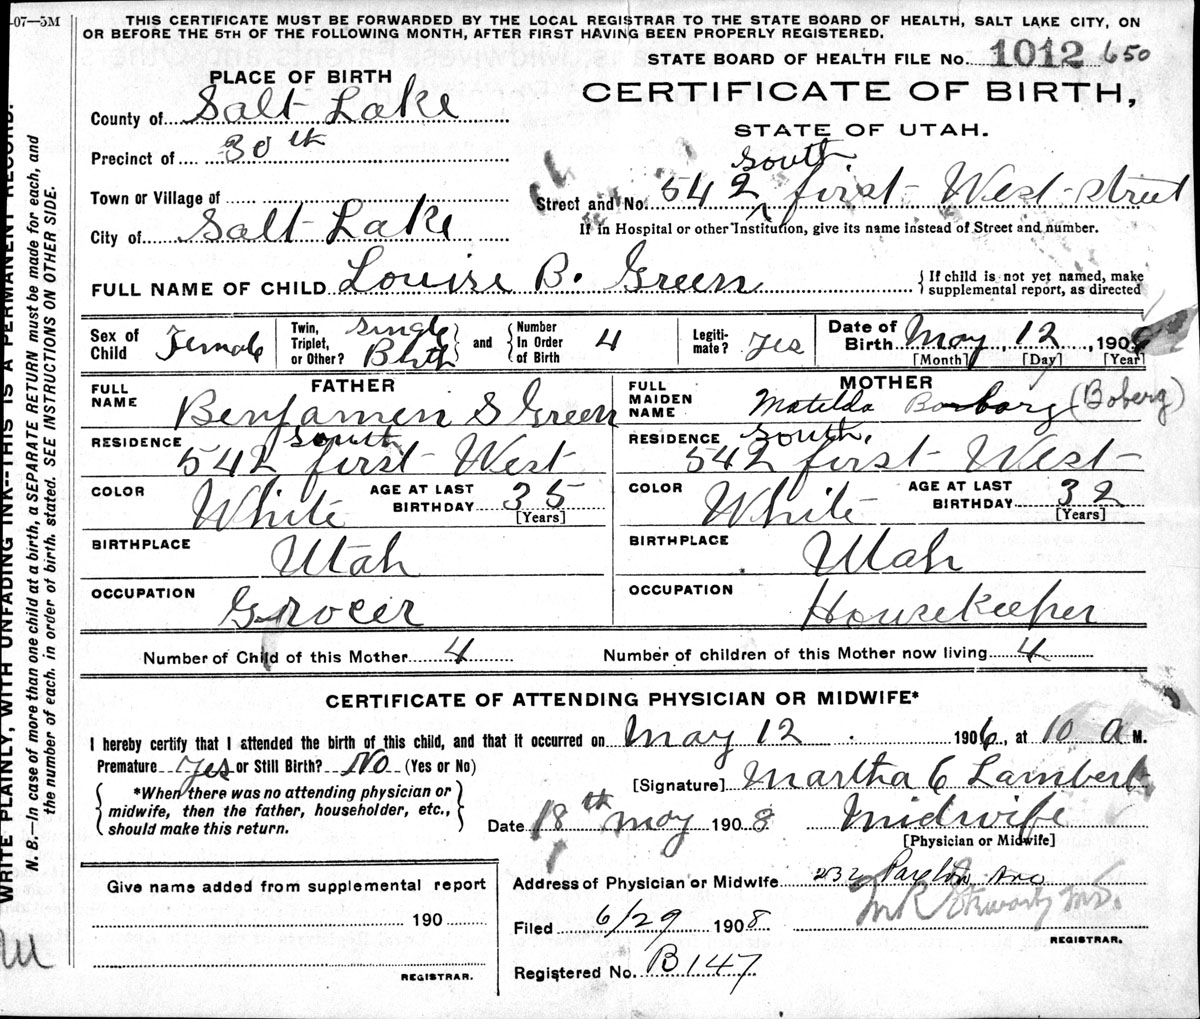 -07-5M
THIS CERTIFICATE MUST BE FORWARDED BY THE LOCAL REGISTRAR TO THE STATE BOARD OF HEALTH, SALT LAKE CITY, ON
OR BEFORE THE 5TH OF THE FOLLOWING MONTH, AFTER FIRST HAVING BEEN PROPERLY REGISTERED.
STATE BOARD OF HEALTH FILE No. 1012 650
PLACE OF BIRTH
CERTIFICATE OF BIRTH,
STATE OF UTAH.
County of Salt Lake
Precinct of 30th
Town or Village of
City of Salt Lake
South
Street and No. 542 first West street
If in Hospital or other Institution, give its name instead of Street and number.
FULL NAME OF CHILD Louise B. Green
{If child is not yet named, make
supplemental report, as directed
Sex of Child Female
Twin, Triplet, or Other? Single Birth
and
Number In Order of Birth 4
Legitimate? Yes
Date of Birth May, 12, 190
[Month] [Day] [Year]
FATHER
FULL NAME Benjamen S Green
RESIDENCE 542 South first West
COLOR White
AGE AT LAST BIRTHDAY 35
[Years]
BIRTHPLACE Utah
OCCUPATION Grocer
MOTHER
FULL MAIDEN NAME Matilda (Boberg)
RESIDENCE 542 South, first West
COLOR White
AGE AT LAST BIRTHDAY 32
[Years]
BIRTHPLACE Utah
OCCUPATION Housekeeper
Number of Child of this Mother 4
Number of children of this Mother now living 4
CERTIFICATE OF ATTENDING PHYSICIAN OR MIDWIFE*
I hereby certify that I attended the birth of this child, and that it occurred on May 12 1906, at 10 A M.
Premature Yes or Still Birth? No (Yes or No)
*When there was no attending physician or
midwife, then the father, householder, etc.,
should make this return.
[Signature] Martha C Lambert
Date 18th May 1908 Midwife
[Physician or Midwife]
Address of Physician or Midwife 232 Ave
Filed 6/29 1908
REGISTRAR.
Registered No. B147
Give name added from supplemental report
190
REGISTRAR.
WRITE PLAINLY, WITH UNFADING INK--THIS IS A PERMANENT RECORD.
N. B.—In case of more than one child at a birth, a SEPARATE RETURN must be made for each, and
the number of each, in order of birth, stated. SEE INSTRUCTIONS ON OTHER SIDE.